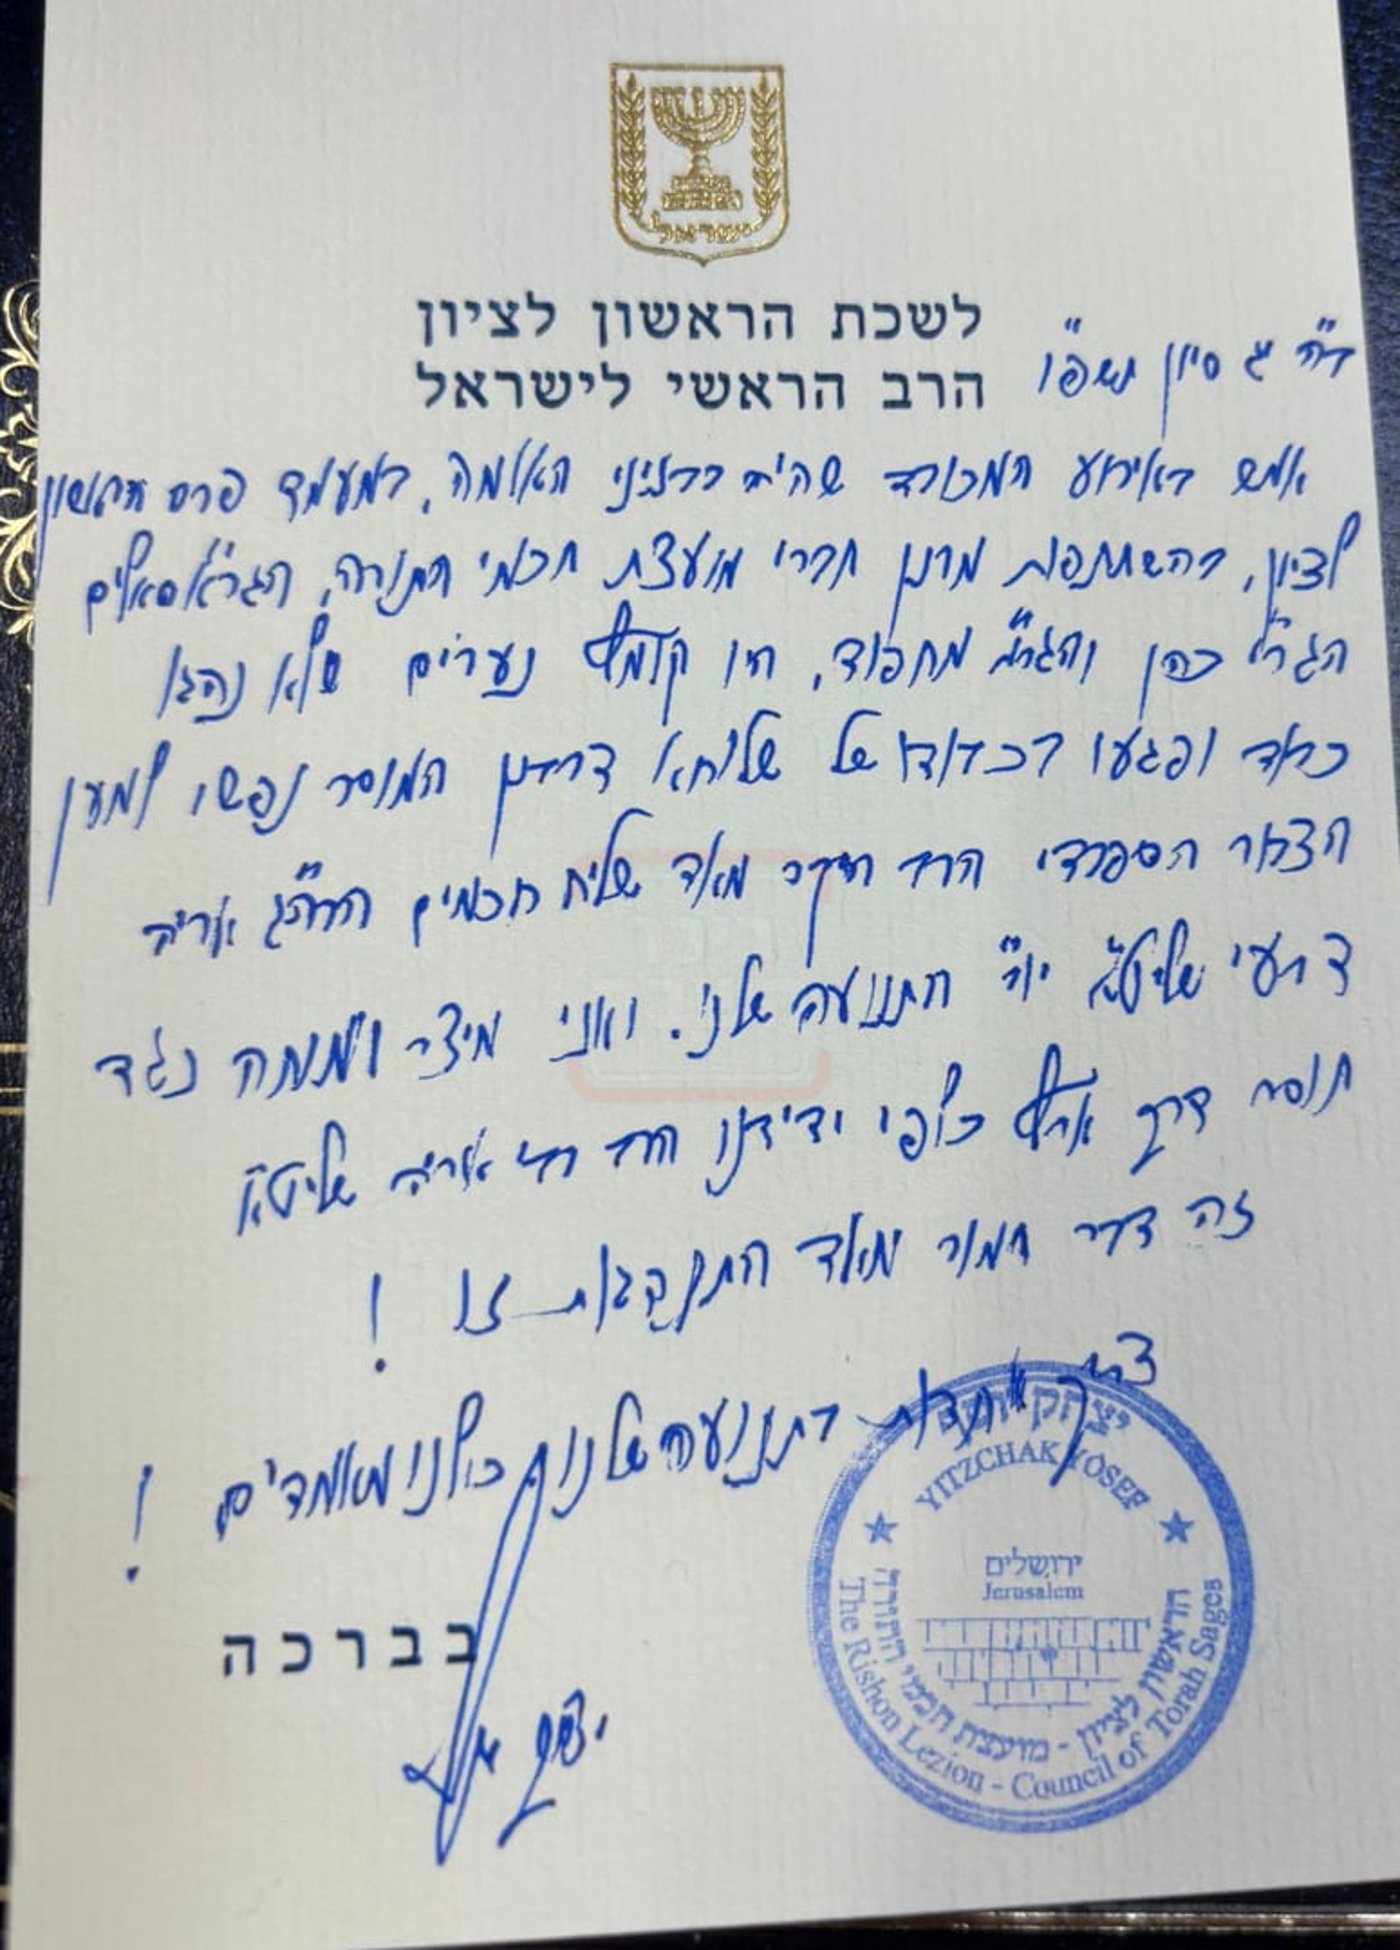 ישראל
לשכת הראשון לציון
הרב הראשי לישראל
בה ג סיון תשפ"ו
אמש באירוע המכובד שהיה בבניני האומה, במעמד פרס הראשון
לציון, בהשתתפות מרנן חברי מועצת חכמי התורה, הגר"א סאלים
הגר"י כהן והגר"מ מחפוד, היו קומץ נערים שלא נהגו
כבוד ופגעו בכבודו של שלוחא דרבנן המוסר נפשו למען
הציבור הספרדי הרב היקר מאד שליח חכמים הרה"ג אריה
דרעי שליט"א יו"ר התנועה שלנו. ואני מיצר ומוחה נגד
חוסר דרך ארץ כלפי ידידנו הרב רבי אריה שליט"א
זה דבר חמור מאד התנהגות זו !
צריך אחדות בתנועה שלנו כולנו מאוחדים !
בברכה
יצחק יוסף
יצחק יוסף
YITZCHAK YOSEF
ירושלים
Jerusalem
הראשון לציון - מועצת חכמי התורה
The Rishon Lezion - Council of Torah Sages